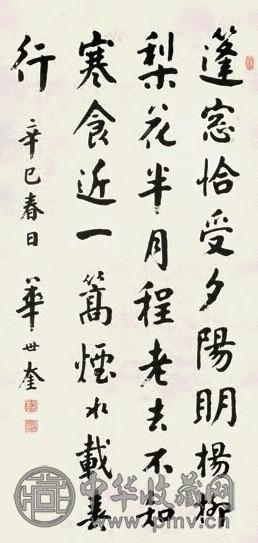 篷窓恰受夕陽明楊柳
梨花半月程老去不知
寒食近一篙煙水載春
行
辛巳春日 華世奎
中华收藏网
www.pmv.cn